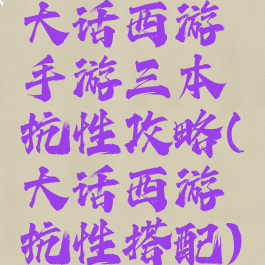 大话西游
手游三本
抗性攻略(
大话西游
抗性搭配)